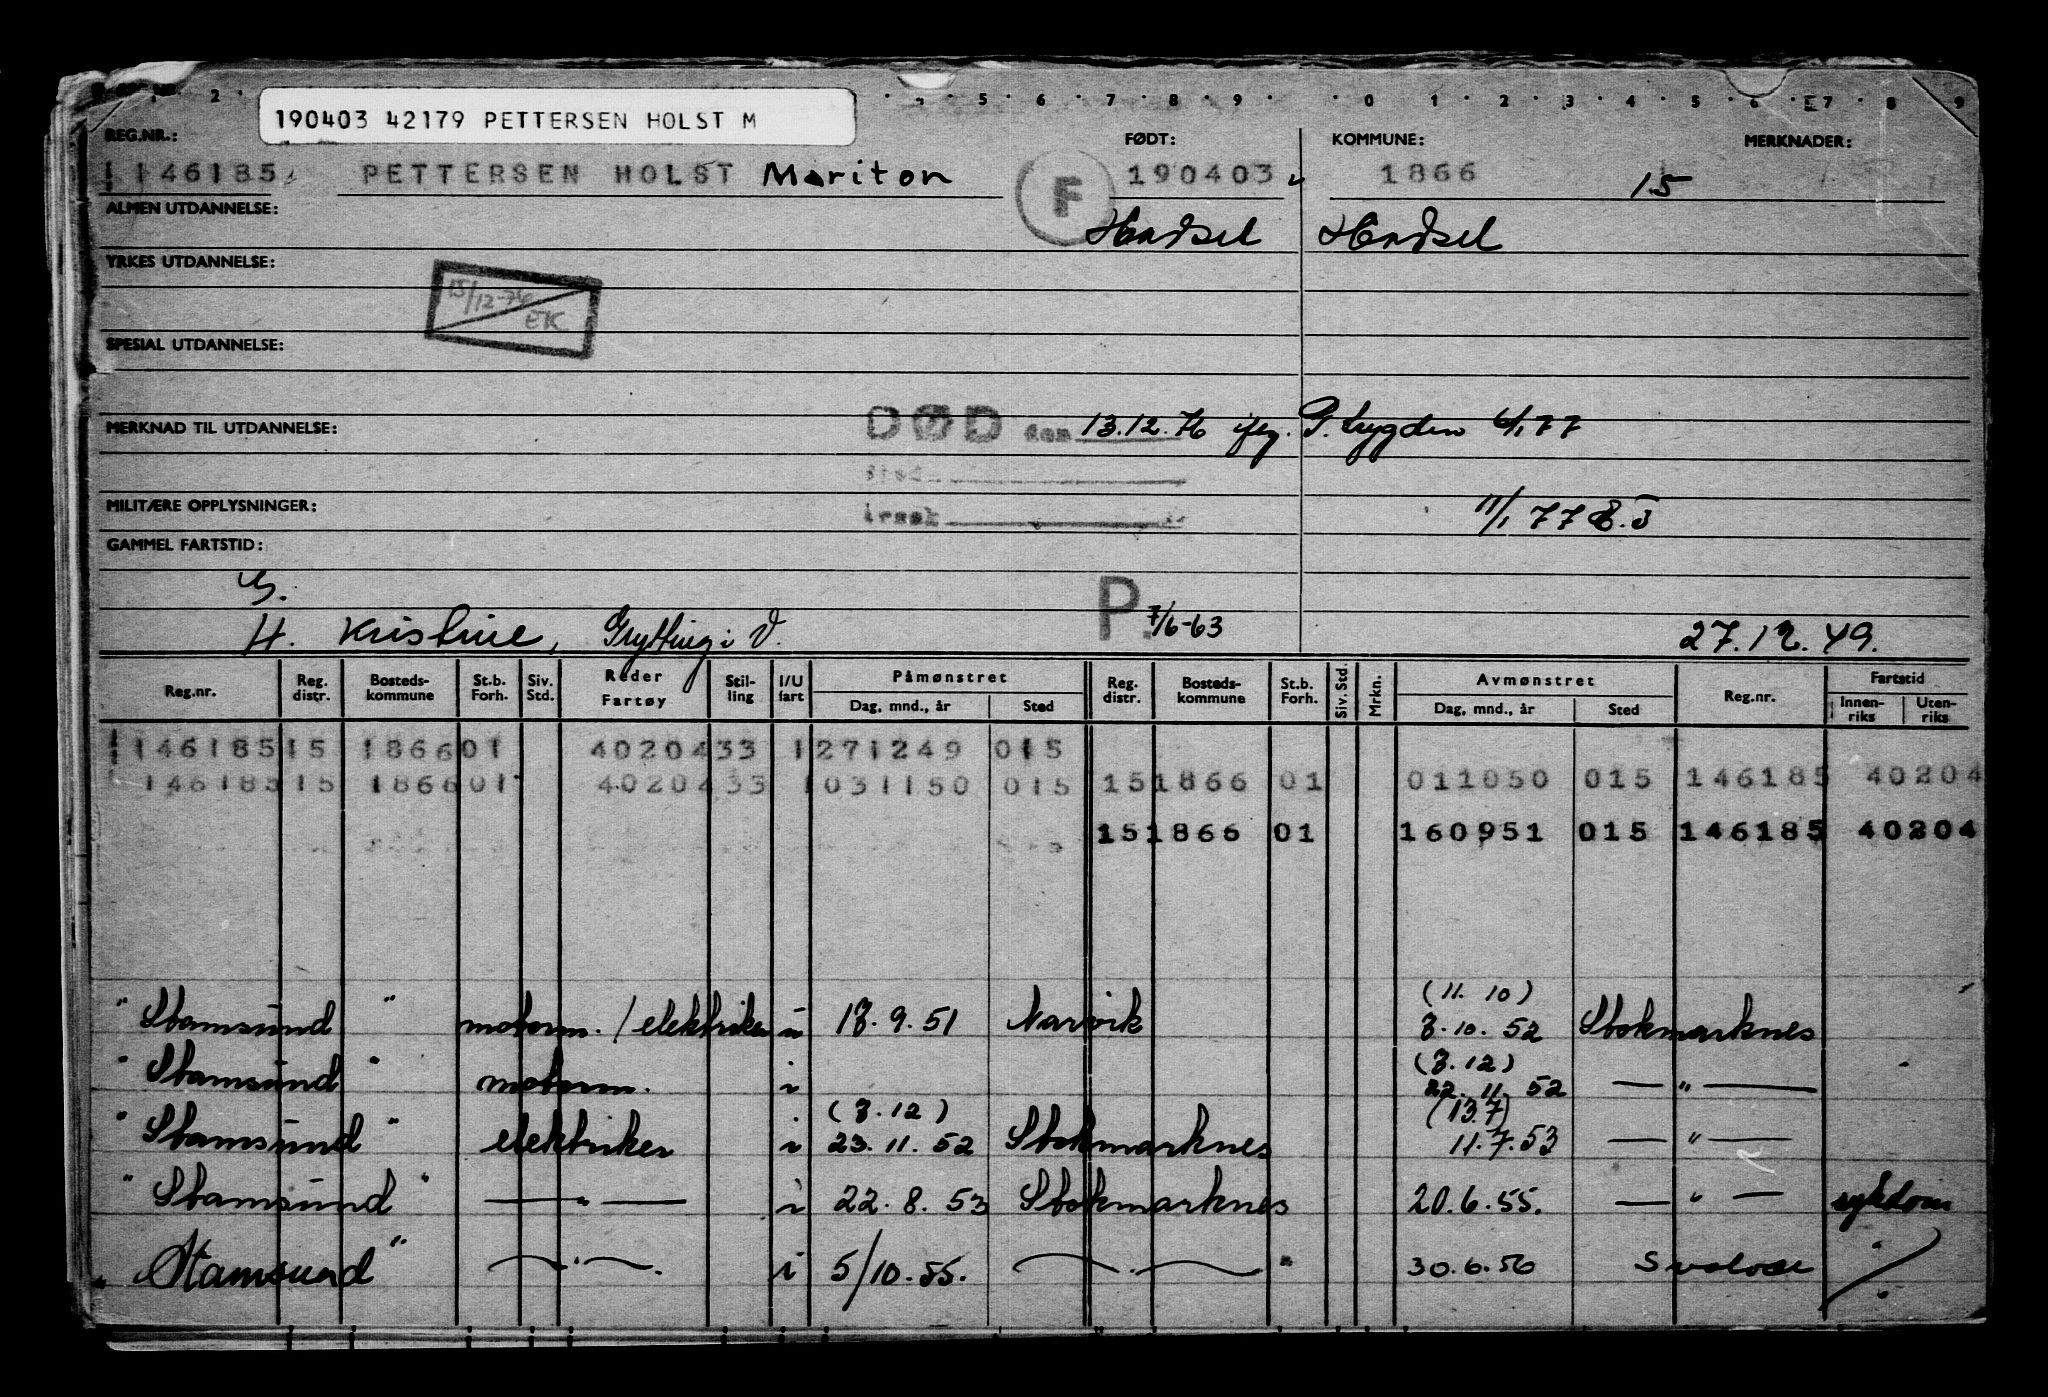 2 · 4 · 5 · 6 · 7 · 8 · 9 · · 0 · 1 · 2 · 3 · 4 · 5 · 6 · 7 · 8 · 9
190403 42179 PETTERSEN HOLST M
REG.NR.: FØDT: KOMMUNE: MERKNADER:
146185 PETTERSEN HOLST Mariton F 190403 1866 15
ALMEN UTDANNELSE: Hadsel Hadsel
YRKES UTDANNELSE:
15/12-76 EK
SPESIAL UTDANNELSE:
MERKNAD TIL UTDANNELSE: DØD den 13.12.76 iflg. P. trygden 6/1 77
Sted
MILITÆRE OPPLYSNINGER: 11/1 77
GAMMEL FARTSTID:
G.
H. Kristine, Grytting i V. P. 7/6-63 27.12.49.
Reg.nr. Reg. distr. Bosteds-kommune St.b. Forh. Siv. Std. Reder Fartøy Stil-ling I/U fart Påmønstret Dag, mnd., år Sted Reg. distr. Bosteds-kommune St.b. Forh. Siv. Std. Mrkn. Avmønstret Dag, mnd., år Sted Reg.nr. Fartstid Innen-riks Uten-riks
146185 15 1866 01 40204 33 1 271249 015
146185 15 1866 01 40204 33 1 031150 015 15 1866 01 011050 015 146185 40204
15 1866 01 160951 015 146185 40204
(11.10)
"Stamsund" motorm. / elektriker u 17.9.51 Narvik 7.10.52 Stokmarknes
(3.12)
"Stamsund" motorm. i 22.11.52 — " —
(3.12) (13.7)
"Stamsund" elektriker i 23.11.52 Stokmarknes 11.7.53 — " —
"Stamsund" — " — i 22.8.53 Stokmarknes 20.6.55. — " — sykdom
"Stamsund" — " — i 5/10.55. — " — 30.6.56 Svolvær ·/·